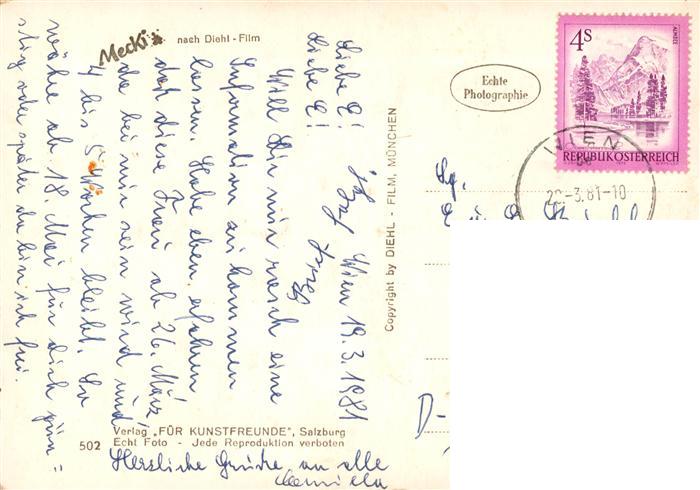 Mecki nach Diehl - Film
Liebe E!
Wien 19.3.1981
Liebe E!
Will Dir nur rasch eine
Information zu kommen
lassen. Habe eben erfahren
daß diese Frau ab 26. März
da bei mir sein wird und
4 bis 5 Wochen bleibt. Da
wäre ab 18. Mai für dich güns=
stig oder später da bin ich frei.
Herzliche Grüße an alle
Camilla
Verlag „FÜR KUNSTFREUNDE", Salzburg
502 Echt Foto - Jede Reproduktion verboten
Copyright by DIEHL - FILM, MÜNCHEN
Echte
Photographie
4S
ALMSEE
REPUBLIK ÖSTERREICH
WIEN
-3.81-10
D-